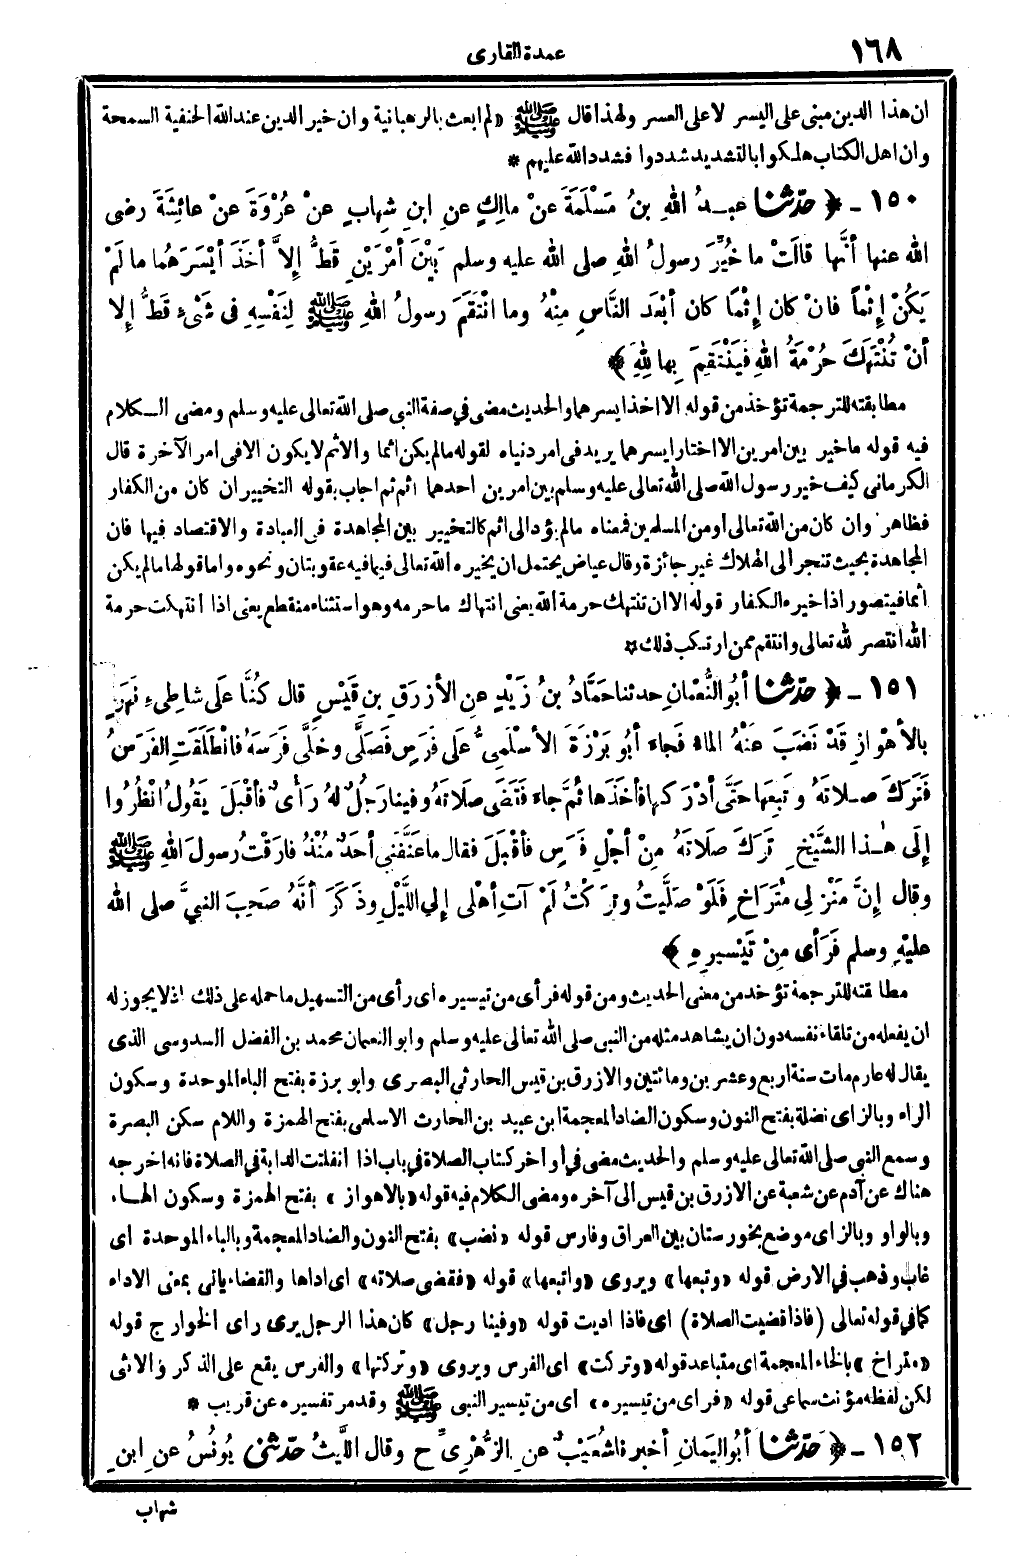 ١٦٨
عمدة القارى
ان هذا الدين مبنى على اليسر لا على العسر ولهذا قال ﷺ «لم ابعث بالرهبانية وان خير الدين عند الله الحنفية السمحة
وان اهل الكتاب هلكوا بالتشديد شددوا فشدد الله عليهم *
١٥٠ - ﴿ حدّثنا عبدُ اللهِ بنُ مَسْلَمَةَ عنْ مالِكٍ عنِ ابنِ شِهابٍ عنْ عُرْوَةَ عنْ عائِشَةَ رضى
الله عنها أنَّها قالَتْ ما خُيِّرَ رسولُ اللهِ صلى الله عليه وسلم بَيْنَ أمْرَيْنِ قَطُّ إلاَّ أخَذَ أيْسَرَهُما ما لَمْ
يَكُنْ إثْماً فانْ كان إثْمًا كان أبْعَدَ النَّاسِ مِنْهُ وما انْتَقَمَ رسولُ اللهِ ﷺ لِنَفْسِهِ فى شَىْءٍ قَطُّ إلا
أنْ تُنْتَهَكَ حُرْمَةُ اللهِ فيَنْتَقِمَ بِها لِلهِ ﴾
مطابقته للترجمة تؤخذ من قوله الا اخذ ايسرهما والحديث مضى في صفة النبى صلى الله تعالى عليه وسلم ومضى الكلام
فيه قوله ما خير بين امرين الا اختار ايسرهما يريد فى امر دنياه لقوله مالم يكن اثما والاثم لا يكون الا فى امر الآخرة قال
الكرمانى كيف خير رسول الله صلى الله تعالى عليه وسلم بين امرين احدهما اثم ثم اجاب بقوله التخيير ان كان من الكفار
فظاهر وان كان من الله تعالى او من المسلمين فمعناه مالم يؤد الى اثم كالتخيير بين المجاهدة فى العبادة والاقتصاد فيها فان
المجاهدة بحيث تنجر الى الهلاك غير جائزة وقال عياض يحتمل ان يخيره الله تعالى فيما فيه عقوبتان ونحوه واما قولها مالم يكن
اثما فيتصور اذا خيره الكفار قوله الا ان تنتهك حرمة الله يعنى انتهاك ما حرمه وهو استثناء منقطع يعنى اذا انتهكت حرمة
الله انتصر لله تعالى وانتقم ممن ارتكب ذلك *
١٥١ - ﴿ حدّثنا أبُو النُّعْمانِ حدثنا حَمَّادُ بنُ زَيْدٍ عنِ الأزرَقِ بنِ قَيْسٍ قال كُنَّا علَى شاطِىءِ نَهَرٍ
بالأهْوازِ قَدْ نَضَبَ عَنْهُ الماءُ فَجاءَ أبُو بَرْزَةَ الأسْلَمِىُّ علَى فَرَسٍ فَصلَّى وخلَّى فَرَسَهُ فانْطَلَقَتِ الفَرَسُ
فتَرَكَ صلاتَهُ وتَبِعَها حتَّى أدْرَكَها فأخَذَها ثُمَّ جاءَ فَقَضَى صَلاتَهُ وفينا رَجُلٌ لهُ رَأىٌ فأقْبَلَ يَقُولُ انْظُرُوا
إلَى هٰذا الشَّيْخِ تَرَكَ صَلَاتَهُ مِنْ أجْلِ فَرَسٍ فأقْبَلَ فقال ما عَنَّفَنِى أحَدٌ مُنْذُ فارَقْتُ رسولَ اللهِ ﷺ
وقال إنَّ مَنْزِلِى مُتَرَاخٍ فلَوْ صَلَّيْتُ وتَرَكْتُ لَمْ آتِ أهْلِى إلى اللَّيْلِ وذَكَرَ أنَّهُ صَحِبَ النبىَّ صلى الله
عليْهِ وسلم فَرَأى مِنْ تَيْسيرِهِ ﴾
مطا قته للترجمة تؤخذ من معنى الحديث ومن قوله فرأى من تيسيره اى رأى من التسهيل ما حمله على ذلك اذ لا يجوز له
ان يفعله من تلقاء نفسه دون ان يشاهد مثله من النبى صلى الله تعالى عليه وسلم وابو النعمان محمد بن الفضل السدوسى الذى
يقال له عارم مات سنة اربع وعشرين ومائتين والازرق بن قيس الحارثى البصرى وابو برزة بفتح الباء الموحدة وسكون
الراء وبالزاى نضلة بفتح النون وسكون الضاد المعجمة ابن عبيد بن الحارث الاسلمى بفتح الهمزة واللام سكن البصرة
وسمع النبى صلى الله تعالى عليه وسلم والحديث مضى في أواخر كتاب الصلاة في باب اذا انفلتت الدابة في الصلاة فانه اخرجه
هناك عن آدم عن شعبة عن الازرق بن قيس الى آخره ومضى الكلام فيه قوله «بالاهواز» بفتح الهمزة وسكون الهاء
وبالواو وبالزاى موضع بخورستان بين العراق وفارس قوله «نضب» بفتح النون والضاد المعجمة وبالباء الموحدة اى
غاب وذهب في الارض قوله «وتبعها» ويروى «واتبعها» قوله «فقضى صلاته» اى اداها والقضاء يأتى بمعنى الاداء
كما في قوله تعالى (فاذا قضيت الصلاة) اى فاذا اديت قوله «وفينا رجل» كان هذا الرجل يرى راى الخوارج قوله
«متراخ» بالخاء المعجمة اى متباعد قوله «وتركت» اى الفرس ويروى «وتركتها» والفرس يقع على الذكر والانثى
لكن لفظه مؤنث سماعى قوله «فراى من تيسيره» اى من تيسير النبى ﷺ وقد مر تفسيره عن قريب *
١٥٢ - ﴿ حَدّثنا أبُو اليَمانِ أخبرنا شُعَيْبٌ عنِ الزُّهْرِىِّ ح وقال اللَّيثُ حدّثنى يُونُسُ عنِ ابنِ
شهاب